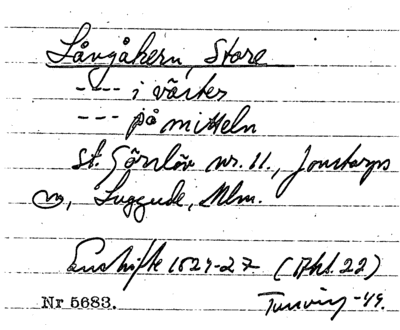 Långåkern, Store
---- i väster
--- på mitteln
St. Görslöv nr. 11., Jonstorps
Luggude, Mlm.
Enskifte 1824-27 (Akt. 22)
Nr 5683. -49.